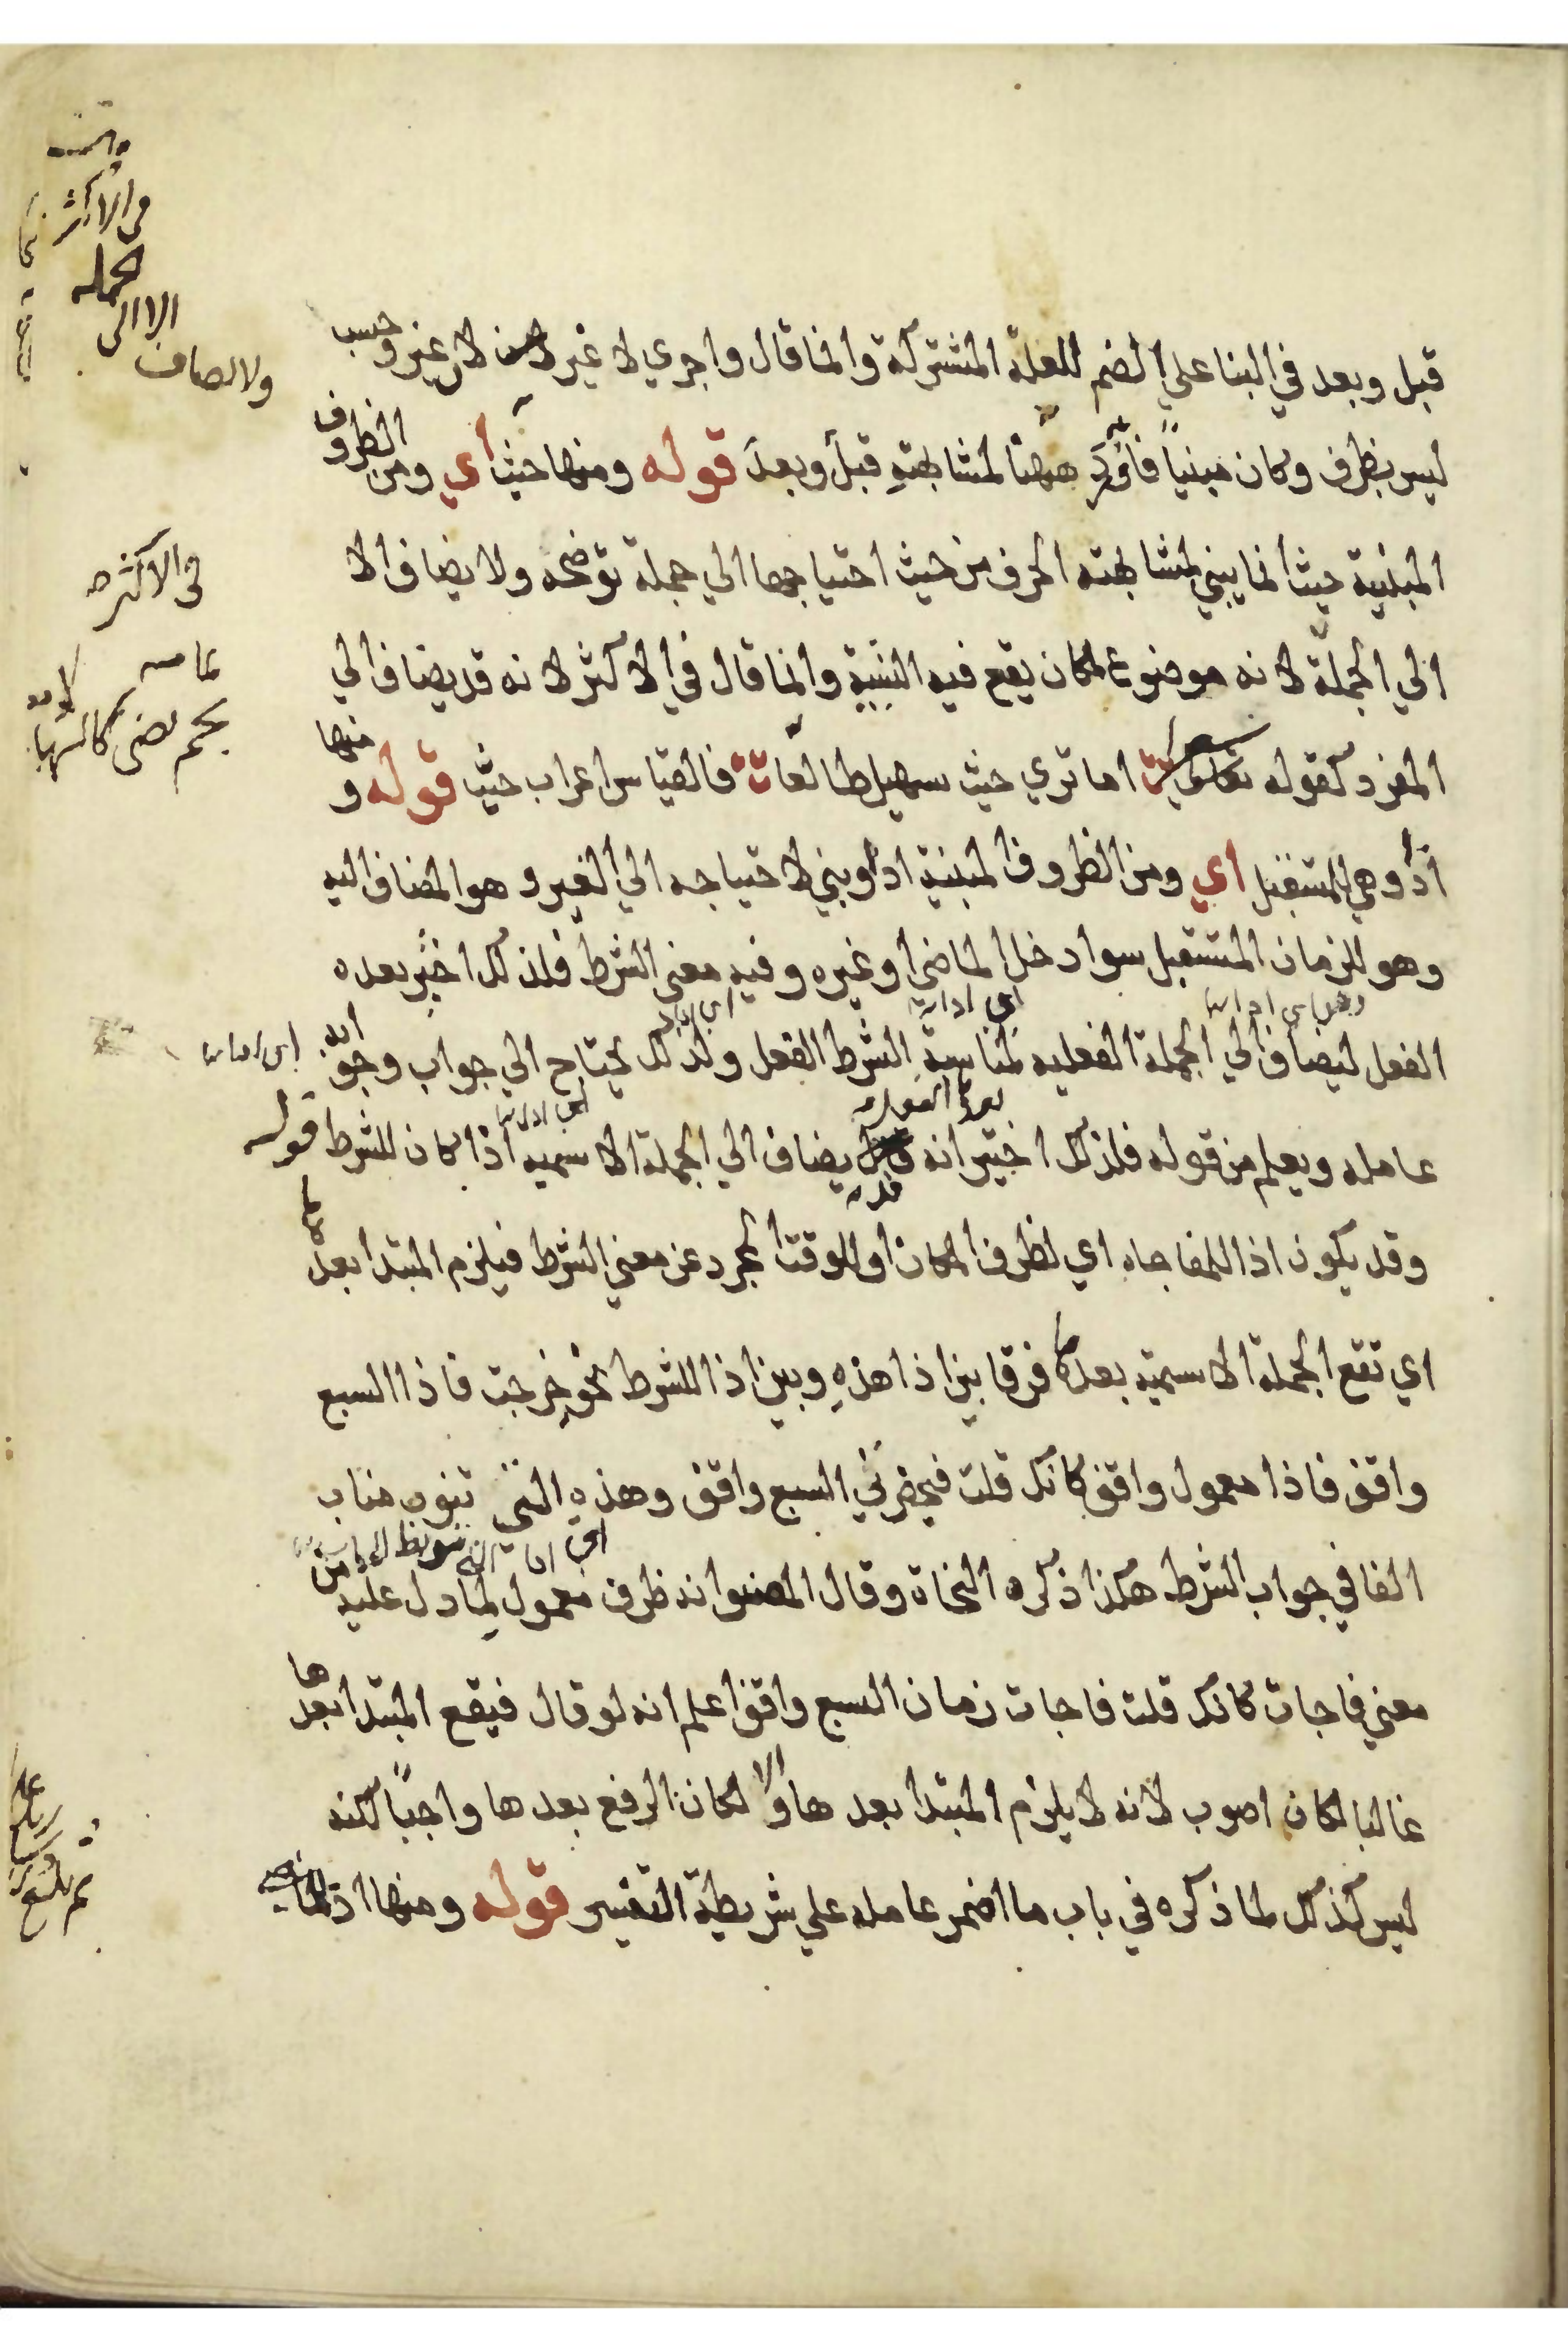 قبل وبعد في البنا علي الضم للعلة المشتركة وانما قال واجري لا غير لان غير وحسب
ليس بظرف وكان مبنياً فاورد ههنا لمشابهتهِ قبلَ وبعدَ قوله ومنها حيث اي ومن الظروف
المبنية حيث انما يبني لمشابهته الحرف من حيث احتياجها الي جملة توضحه ولا يضاف الا
الي الجملة لانه موضوع لمكان يقع فيه النسبة وانما قال في الاكثر لانه قد يضاف الي
المفرد كقوله اما تري حيث سهيل طالعا فالقياس اعراب حيث قوله ومنها
اذا وهي للمستقبل اي ومن الظروف المبنية اذا وبني لاحتياجه الي الغير وهو المضاف اليه
وهو للزمان المستقبل سوا دخل الماضي او غيره وفيه معني الشرط فلذلك اختير بعده
الفعل ليضاف الي الجملة الفعليه لمناسبة الشرط الفعل ولذلك يحتاج الي جواب وجوابه
عامله ويعلم من قوله فلذلك اختير انه قد يضاف الي الجملة الاسميه اذا كان للشرط قوله
وقد يكون اذا للمفاجاه اي لظرف المكان او للوقت المجرد عن معني الشرط فيلزم المبتدا بعدها
اي تقع الجملة الاسمية بعدها فرقا بين اذا هذهِ وبين اذا للشرط نحو خرجت فاذا السبع
واقف فاذا معمول واقف كانك قلت فيحضرني السبع واقف وهذهِ التي تنوب مناب
الفا في جواب الشرط هكذا ذكره النحاة وقال المصنف انه ظرف معمول لما دل عليه من
معني فاجات كانك قلت فاجات زمان السبع واقف اعلم انه لو قال فيقع المبتدا بعدها
غالبا لكان اصوب لانه لا يلزم المبتدا بعدها والا لكان الرفع بعدها واجباً لكنه
ليس كذلك لما ذكره في باب ما اضمر عامله علي شريطة التفسير قوله ومنها اذ للماضي
في الاكثر
الا الى
ولا يضاف
في الاكثر